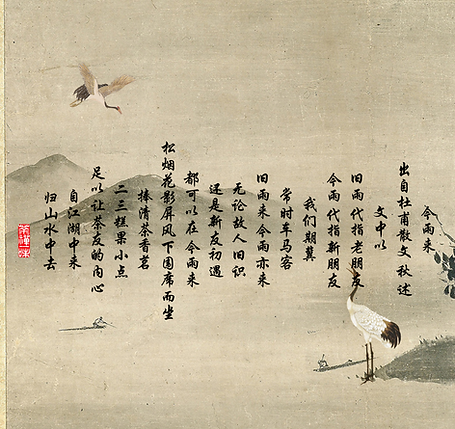 今雨来
出自杜甫散文秋述
文中以
旧雨代指老朋友
今雨代指新朋友
我们期冀
常时车马客
旧雨来今雨亦来
无论故人旧识
还是新友初遇
都可以在今雨来
松烟花影屏风下围席而坐
捧清茶香茗
二三糕果小点
足以让茶友的内心
自江湖中来
归山水中去